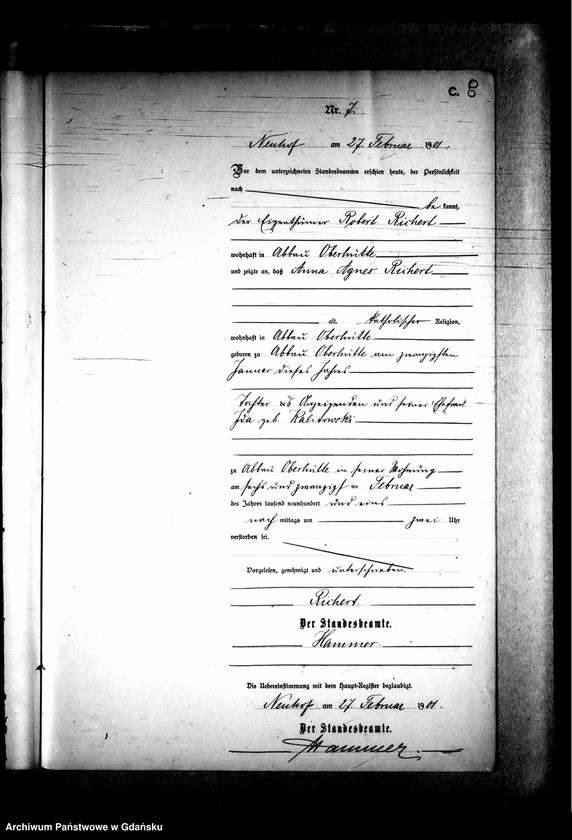 C. 8
Nr. 7.
Neuhof am 27. Februar 1901.
Vor dem unterzeichneten Standesbeamten erschien heute, der Persönlichkeit
nach
be kannt,
der Eigenthümer Robert Richert
wohnhaft in Abbau Oberhütte
und zeigte an, daß Anna Agnes Richert
alt, katholischer Religion,
wohnhaft in Abbau Oberhütte
geboren zu Abbau Oberhütte am zwanzigsten
Januar dieses Jahres
Tochter des Anzeigenden und seiner Ehefrau
Ida geb. Kalitowski
zu Abbau Oberhütte in seiner Wohnung
am sechs und zwanzigst en Februar
des Jahres tausend neunhundert und eins
nach mittags um zwei Uhr
verstorben sei.
Vorgelesen, genehmigt und unterschrieben.
Richert
Der Standesbeamte.
Hammer.
Die Uebereinstimmung mit dem Haupt-Register beglaubigt.
Neuhof am 27. Februar 1901.
Der Standesbeamte.
Hammer.
Archiwum Państwowe w Gdańsku